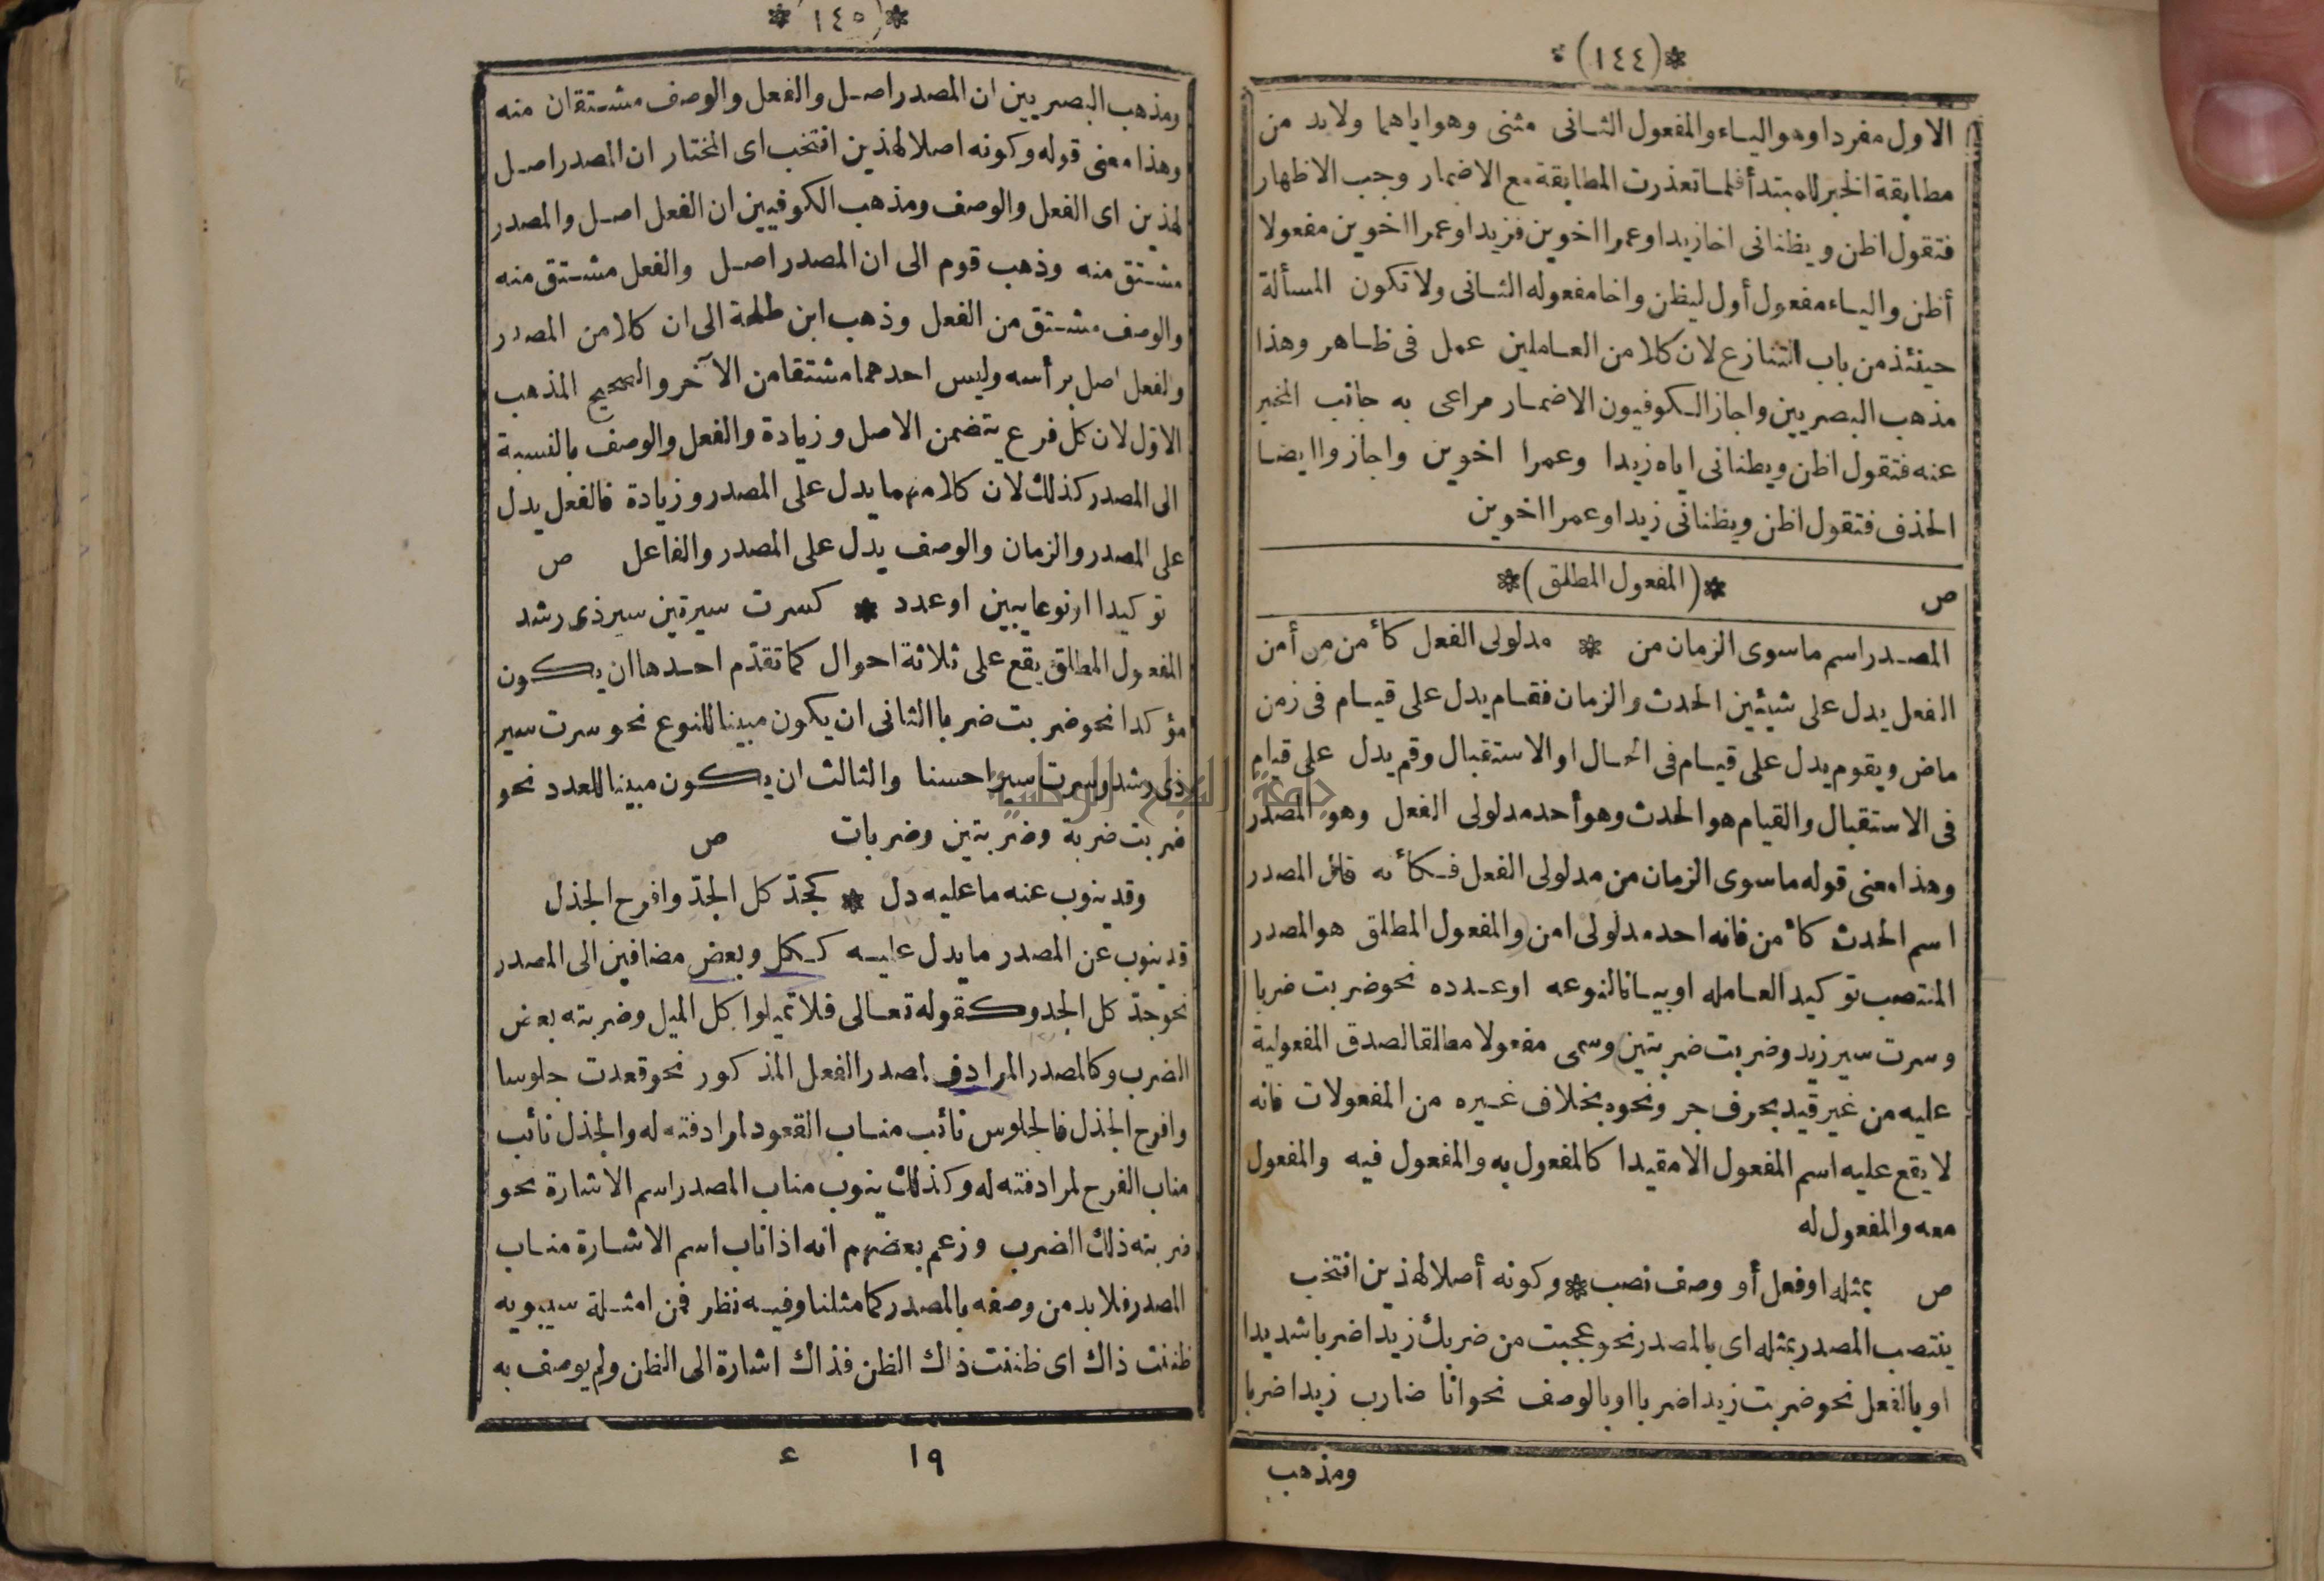 *(١٤٤)*
الاول مفردا وهو الياء والمفعول الثانى مثنى وهو اياهما ولابد من
مطابقة الخبر للمبتدأ فلما تعذرت المطابقة مع الاضمار وجب الاظهار
فتقول اظن ويظنانى اخا زيدا وعمرا اخوين فزيدا وعمرا اخوين مفعولا
أظن والياء مفعول أول ليظن واخا مفعوله الثانى ولا تكون المسألة
حينئذ من باب التنازع لان كلا من العاملين عمل فى ظاهر وهذا
مذهب البصريين واجاز الكوفيون الاضمار مراعى به جانب المخبر
عنه فتقول اظن ويظنانى اياه زيدا وعمرا اخوين واجازوا ايضا
الحذف فتقول اظن ويظنانى زيدا وعمرا اخوين
ص *(المفعول المطلق)*
المصدر اسم ما سوى الزمان من * مدلولى الفعل كأمن من أمن
الفعل يدل على شيئين الحدث والزمان فقام يدل على قيام فى زمن
ماض ويقوم يدل على قيام فى الحال او الاستقبال وقم يدل على قيام
فى الاستقبال والقيام هو الحدث وهو أحد مدلولى الفعل وهو المصدر
وهذا معنى قوله ما سوى الزمان من مدلولى الفعل فكأنه قال المصدر
اسم الحدث كأمن فانه احد مدلولى امن والمفعول المطلق هو المصدر
المنتصب توكيدا لعامله او بيانا لنوعه او عدده نحو ضربت ضربا
وسرت سير زيد وضربت ضربتين وسمى مفعولا مطلقا لصدق المفعولية
عليه من غير قيد بحرف جر ونحوه بخلاف غيره من المفعولات فانه
لا يقع عليه اسم المفعول الا مقيدا كالمفعول به والمفعول فيه والمفعول
معه والمفعول له
ص بمثله او فعل أو وصف نصب * وكونه أصلا لهذين انتخب
ينتصب المصدر بمثله اى بالمصدر نحو عجبت من ضربك زيدا ضربا شديدا
او بالفعل نحو ضربت زيدا ضربا او بالوصف نحو انا ضارب زيدا ضربا
ومذهب
*(١٤٥)*
ومذهب البصريين ان المصدر اصل والفعل والوصف مشتقان منه
وهذا معنى قوله وكونه اصلا لهذين انتخب اى المختار ان المصدر اصل
لهذين اى الفعل والوصف ومذهب الكوفيين ان الفعل اصل والمصدر
مشتق منه وذهب قوم الى ان المصدر اصل والفعل مشتق منه
والوصف مشتق من الفعل وذهب ابن طلحة الى ان كلا من المصدر
والفعل اصل برأسه وليس احدهما مشتقا من الآخر والصحيح المذهب
الاوّل لان كل فرع يتضمن الاصل وزيادة والفعل والوصف بالنسبة
الى المصدر كذلك لان كلا منهما يدل على المصدر وزيادة فالفعل يدل
على المصدر والزمان والوصف يدل على المصدر والفاعل ص
توكيدا او نوعا يبين او عدد * كسرت سيرتين سير ذى رشد
المفعول المطلق يقع على ثلاثة احوال كما تقدّم احدها ان يكون
مؤكدا نحو ضربت ضربا الثانى ان يكون مبينا للنوع نحو سرت سير
ذى رشد وسرت سيرا حسنا والثالث ان يكون مبينا للعدد نحو
ضربت ضربة وضربتين وضربات ص
وقد ينوب عنه ما عليه دل * كجدّ كل الجدّ وافرح الجذل
قد ينوب عن المصدر ما يدل عليه ككل وبعض مضافين الى المصدر
نحو جدّ كل الجد وكقوله تعالى فلا تميلوا كل الميل وضربته بعض
الضرب وكالمصدر المرادف لمصدر الفعل المذكور نحو قعدت جلوسا
وافرح الجذل فالجلوس نائب مناب القعود لمرادفته له والجذل نائب
مناب الفرح لمرادفته له وكذلك ينوب مناب المصدر اسم الاشارة نحو
ضربته ذلك الضرب وزعم بعضهم انه اذا ناب اسم الاشارة مناب
المصدر فلابد من وصفه بالمصدر كما مثلنا وفيه نظر فمن امثلة سيبويه
ظننت ذاك اى ظننت ذاك الظن فذاك اشارة الى الظن ولم يوصف به
١٩ ع
جامعة النجاح الوطنية